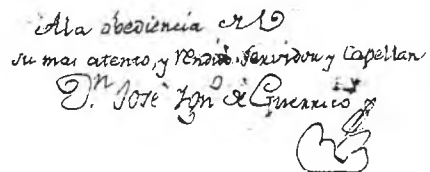 A la obediencia de V
su mas atento, y rendido servidor y Capellan
Dn. José Ign.o de Guerrico